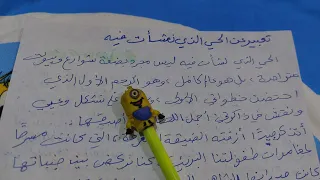 تعبير عن الحي الذي نشأت فيه
الحي الذي نشأت فيه ليس مجرد بضعة شوارع وبيوت
متراصة، بل هو عالم كامل، وهو الرحم الأول الذي
احتضن خطواتي الأولى شكل وعيي
ونقش في ذاكرتي أجمل
أتذكر جيدًا أزقته الضيقة التي كانت مسرحًا
لمغامرات طفولتنا البريئة كنا نركض بين جنباتها